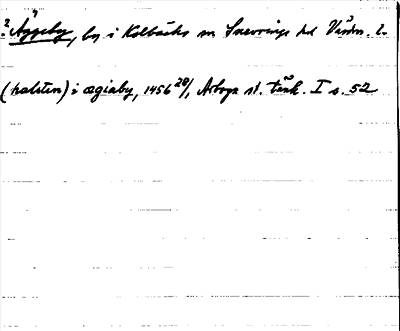 ? Äggeby, by i Kolbäcks sn Snevringe hd Västm. l.
(halsten) i ægiaby, 1456 28/1 Arboga st. tänk. I s. 52